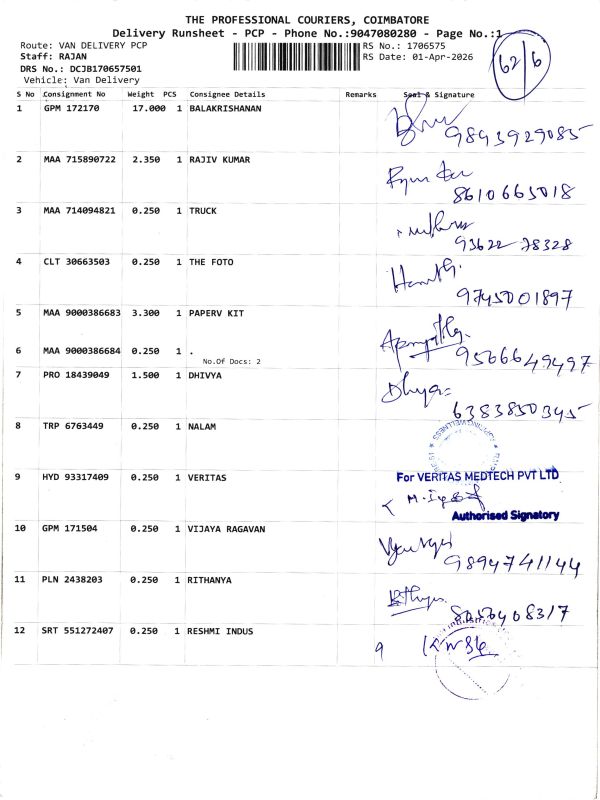 THE PROFESSIONAL COURIERS, COIMBATORE
Delivery Runsheet - PCP - Phone No.:9047080280 - Page No.:1
Route: VAN DELIVERY PCP
RS No.: 1706575
Staff: RAJAN
RS Date: 01-Apr-2026
DRS No.: DCJB170657501
Vehicle: Van Delivery
62/6
S No Consignment No Weight PCS Consignee Details Remarks Seal & Signature
1 GPM 172170 17.000 1 BALAKRISHANAN
9843929085
2 MAA 715890722 2.350 1 RAJIV KUMAR
8610663018
3 MAA 714094821 0.250 1 TRUCK
93622 78328
4 CLT 30663503 0.250 1 THE FOTO
9745001897
5 MAA 9000386683 3.300 1 PAPERV KIT
6 MAA 9000386684 0.250 1 .
No.Of Docs: 2
9566649497
7 PRO 18439049 1.500 1 DHIVYA
Dhya
6383850345
8 TRP 6763449 0.250 1 NALAM
9 HYD 93317409 0.250 1 VERITAS
For VERITAS MEDTECH PVT LTD
Authorised Signatory
10 GPM 171504 0.250 1 VIJAYA RAGAVAN
9894741144
11 PLN 2438203 0.250 1 RITHANYA
12 SRT 551272407 0.250 1 RESHMI INDUS
9